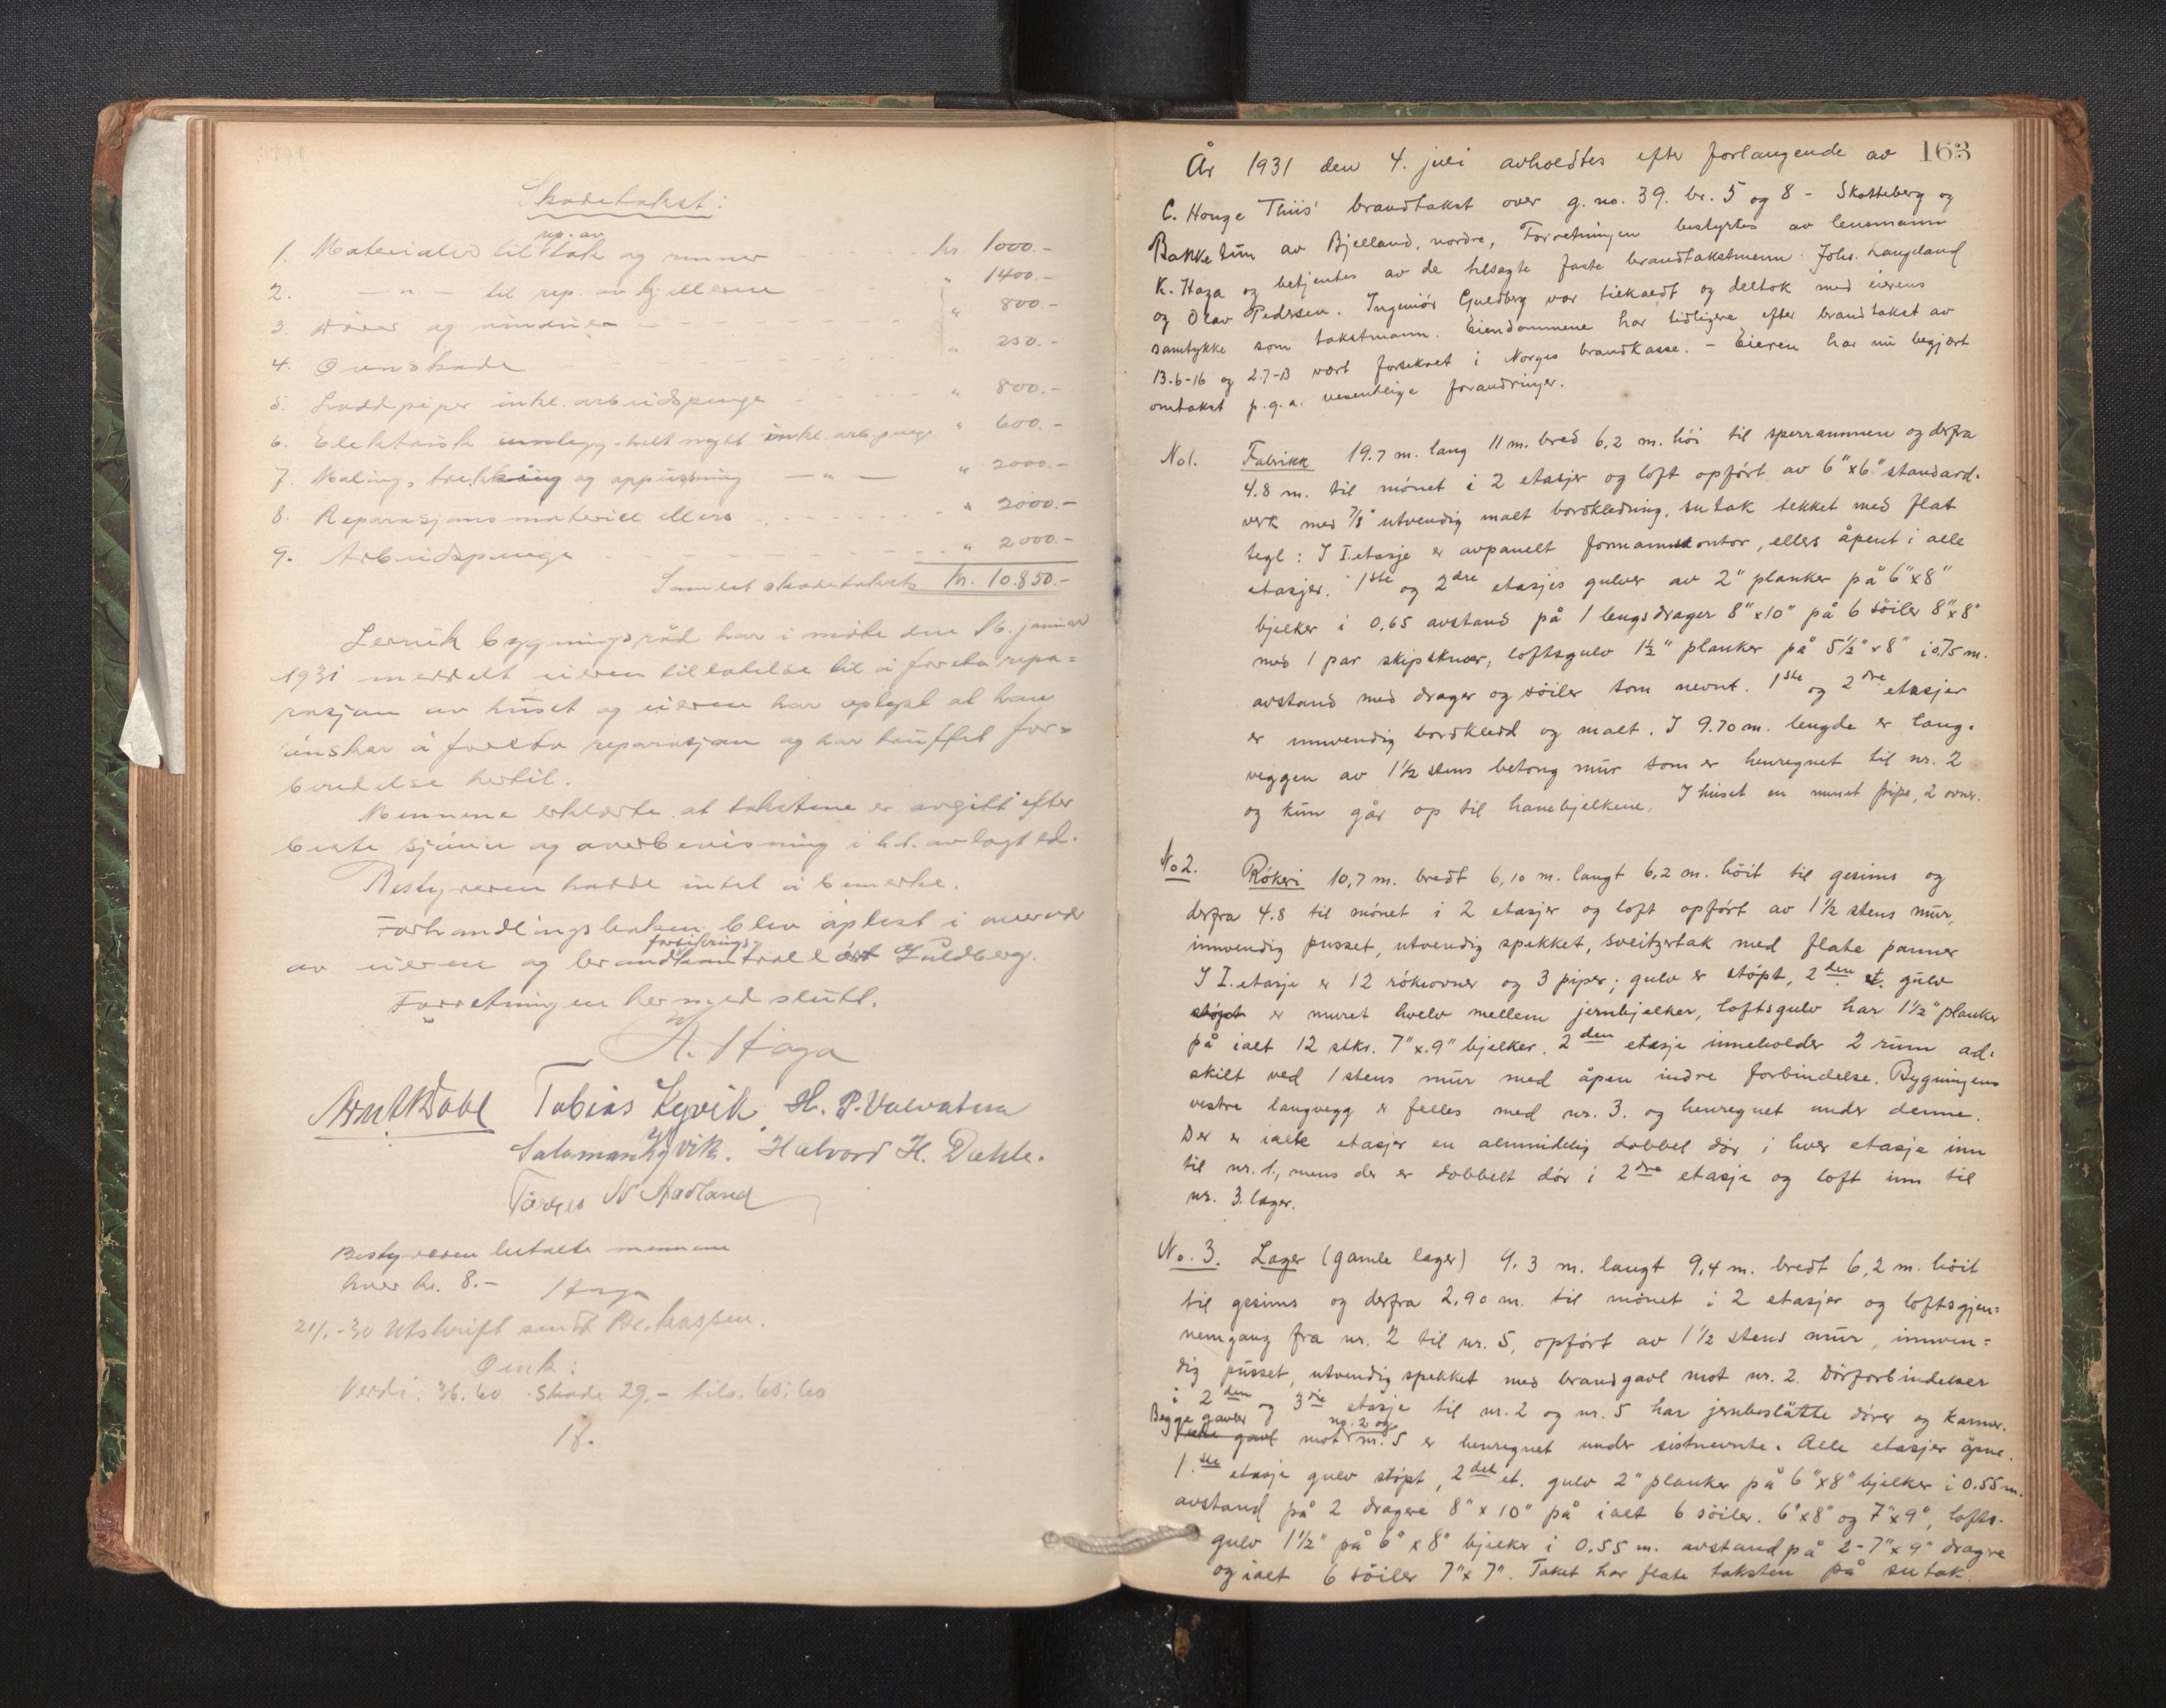 Skadetakst:
1. Materialer til rep. av tak og renner kr. 1000.-
2. — " — til rep. av kjelleren " 1400.-
3. Dörer og vinduer " 800.-
4. Ovnskade " 250.-
5. piper inkl. arbeidspenge " 800.-
6. Elektrisk innlegg - helt nytt inkl. arb. penge " 600.-
7. Maling, trekking og oppussning — " — " 2000.-
8. Reparasjonsmateriell ellers " 2000.-
9. Arbeidspenge " 2000.-
Samlet skadetakst kr. 10.850.-
Lervik bygningsråd har i möte den 16. januar
1931 meddelt eieren tillatelse til å foreta repa=
rasjon av huset og eieren har oplyst at han
önsker å foreta reparasjon og har truffet for=
beredelse hertil.
Mennene erklærte at takstene er avgitt efter
beste sjönn og overbevisning i h.t. avlagt ed.
Bestyreren hadde intet å bemerke.
Forhandlingsboken blev oplest i overvær
av eieren og brandforsikringskontrollör Guldberg.
Forretningen hermed slutt.
K. Haga
Arnt Dahl Tobias Kyvik. H. P. Valvatna
Salamon Kyvik. Halvord H. Dahle.
Torges N Aadland
Bestyreren betalte mennene
hver kr. 8.- Haga
21/1.-30 Utskrift sendt Br. kassen.
Omk:
Verdi. 36.60 - Skade 29.- tils. 65.60
163
År 1931 den 4. juli avholdtes efter forlangende av
C. Houge Thiis' brandtakst over g.no. 39. br. 5 og 8 - Skotteberg og
Bakketun av Bjelland, nordre, Forretningen bestyrtes av lensmann
K. Haga og betjentes av de tilsagte faste brandtakstmenn. Johs. Langeland
og Olav Pedersen. Ingeniör Guldberg var tilkaldt og deltok med eierens
samtykke som takstmann. Eiendommene har tidligere efter brandtakst av
13.6-16 og 2.7-13 vært forsikret i Norges brandkasse. - Eieren har nu begjært
omtakst p.g.a. vesentlige forandringer.
No 1. Fabrikk 19.7 m. lang 11 m. bred 6,2 m. höi til sperrammen og derfra
4.8 m. til mönet i 2 etasjer og loft opfört av 6"x6" standard-
verk med 7/8" utvendig malt bordkledning, sutak tekket med flat
tegl: I I. etasje er avpanelt formannskontor, ellers åpent i alle
etasjer. 1ste og 2dre etasjes gulver av 2" planker på 6"x8"
bjelker i 0.65 avstand på 1 lengsdrager 8"x10" på 6 söiler 8"x8"
med 1 par skipsknær, loftsgulv 1½" planker på 5½"x8" i 0.75 m.
avstand med drager og söiler som nevnt. 1ste og 2dre etasjer
er innvendig bordkledd og malt. I 9.70 m. lengde er lang-
veggen av 1½ stens betong mur som er henregnet til nr. 2
og kun går op til hanebjelkene. I huset en muret pipe, 2 ovner.
No 2. Rökeri 10,7 m. bredt 6,10 m. langt 6,2 m. höit til gesims og
derfra 4.8 til mönet i 2 etasjer og loft opfört av 1½ stens mur,
innvendig pusset, utvendig spekket, sveitzertak med flate panner
I I. etasje er 12 rökeovner og 3 piper; gulv er stöpt, 2den et. gulv
stöpt er muret hvelv mellem jernbjelker, loftsgulv har 1½" planker
på ialt 12 stkr. 7"x9" bjelker. 2den etasje inneholder 2 rum ad-
skilt ved 1 stens mur med åpen indre forbindelse. Bygningens
vestre langvegg er felles med nr. 3. og henregnet under denne.
Der er ialle etasjer en almindelig dobbel dör i hver etasje inn
til nr. 1., mens der er dobbelt dör i 2dre etasje og loft inn til
nr. 3. lager.
No. 3. Lager (gamle lager) 9.3 m. langt 9,4 m. bredt 6,2 m. höit
til gesims og derfra 2.90 m. til mönet i 2 etasjer og loftsgjen=
nemgang fra nr. 2 til nr. 5, opfört av 1½ stens mur, innven=
dig pusset, utvendig spekket med brandgavl mot nr. 2. Dörforbindelser
i 2den og 3die etasje til nr. 2 og nr. 5 har jernbeslåtte dörer og karmer.
Begge gavler mot no. 2 og nr. 5 er henregnet under sistnevnte. Alle etasjer åpne.
1.ste etasje gulv stöpt, 2det et. gulv 2" planker på 6"x8" bjelker i 0.55 m.
avstand på 2 dragere 8"x10" på ialt 6 söiler. 6"x8" og 7"x9", lofts-
gulv 1½" på 6"x8" bjelker i 0.55 m. avstand på 2-7"x9" dragre
og ialt 6 söiler 7"x7". Taket har flate taksten på sutak.